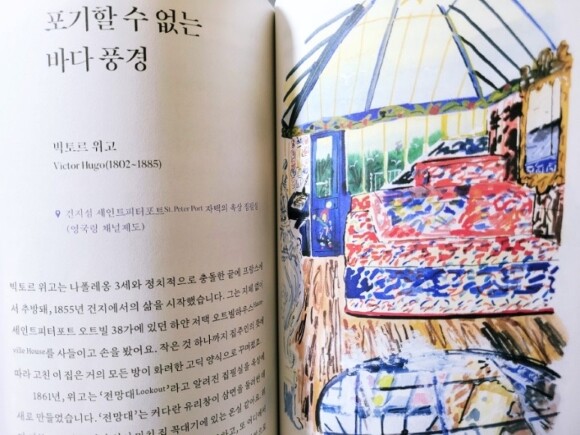 포기할 수 없는
바다 풍경
빅토르 위고
Victor Hugo(1802~1885)
건지섬 세인트피터포트St. Peter Port 자택의 옥상 집필실
(영국령 채널 제도)
빅토르 위고는 나폴레옹 3세와 정치적으로 충돌한 끝에 프랑스에
서 추방돼, 1855년 건지에서의 삶을 시작했습니다. 그는 지체 없이
세인트피터포트 오트빌 38가에 있던 하얀 저택 오트빌하우스Haute
ville House를 사들이고 손을 봤어요. 작은 것 하나까지 집주인의 뜻에
따라 고친 이 집은 거의 모든 방이 화려한 고딕 양식으로 꾸며졌죠.
1861년, 위고는 ‘전망대Lookout’라고 알려진 집필실을 옥상에
새로 만들었습니다. ‘전망대’는 커다란 유리창이 삼면을 둘러싼
집 꼭대기에 있는 온실